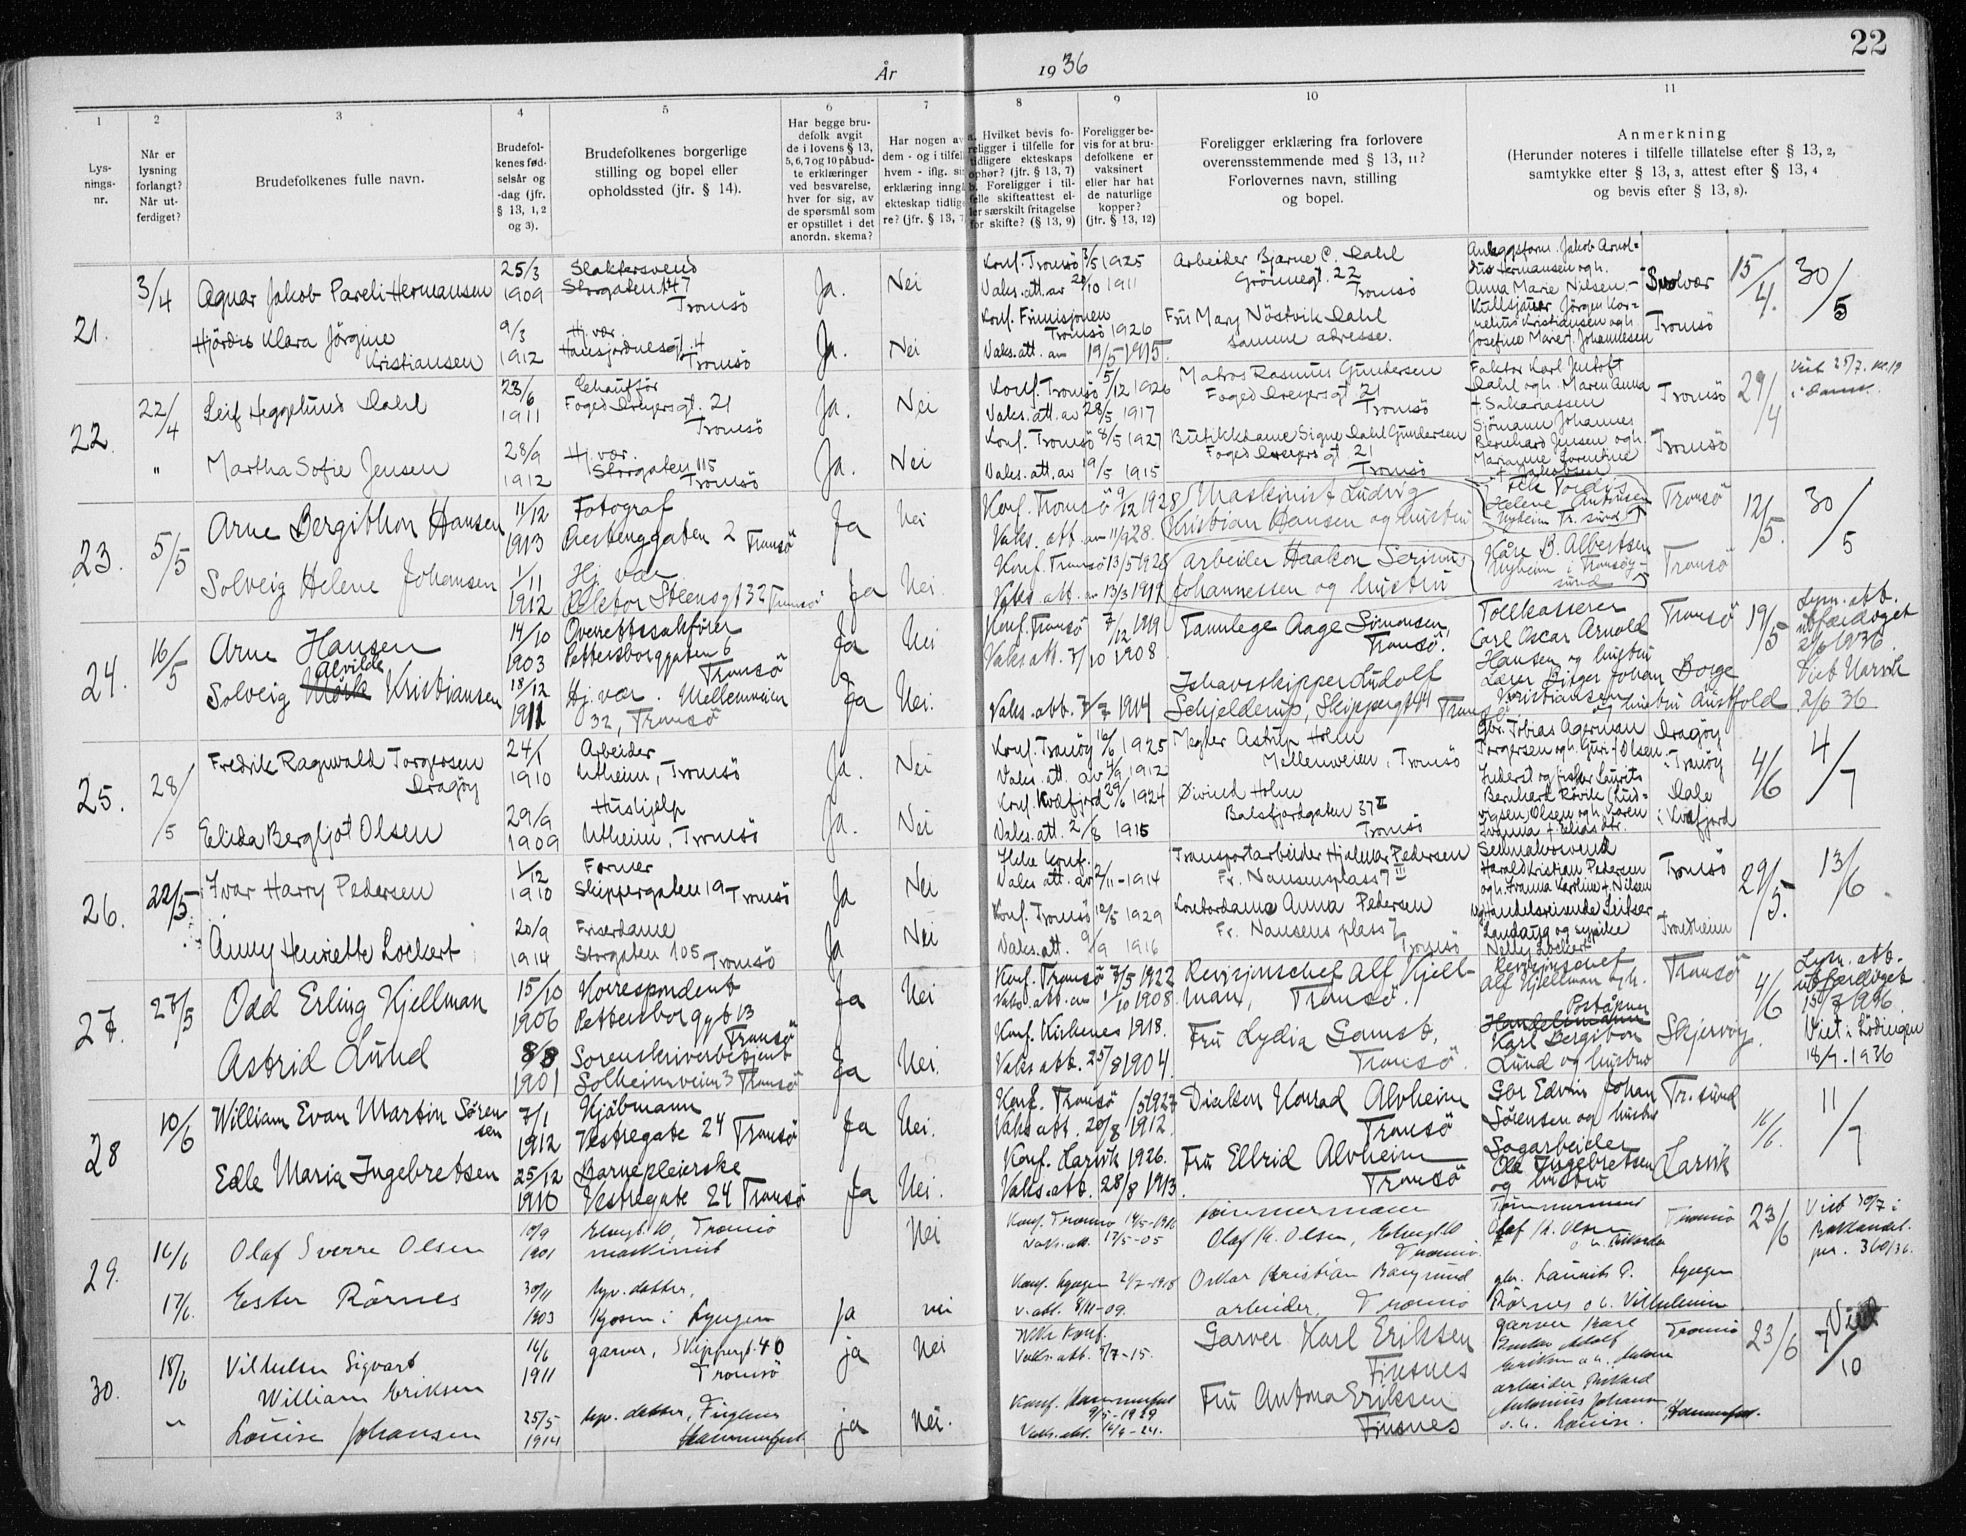 22
År 1936
1 2 3 4 5 6 7 8 9 10 11
Lys-
nings-
nr.
Når er
lysning
forlangt?
Når ut-
ferdiget?
Brudefolkenes fulle navn.
Brudefol-
kenes fød-
selsår og
-dag (jfr.
§ 13, 1, 2
og 3).
Brudefolkenes borgerlige
stilling og bopel eller
opholdssted (jfr. § 14).
Har begge bru-
defolk avgit
de i lovens § 13,
5, 6, 7 og 10 påbud-
te erklæringer
ved besvarelse,
hver for sig, av
de spørsmål som
er opstillet i det
anordn. skema?
Har nogen av
dem - og i tilfel
hvem - iflg. si
erklæring inngå
ekteskap tidlig
re? (jfr. § 13, 7
a. Hvilket bevis fo-
religger i tilfelle for
tidligere ekteskaps
ophør? (jfr. § 13, 7)
b. Foreligger i til-
felle skifteattest el-
ler særskilt fritagelse
for skifte? (§ 13, 9)
Foreligger be-
vis for at bru-
defolkene er
vaksinert
eller har hat
de naturlige
kopper?
(jfr. § 13, 12)
Foreligger erklæring fra forlovere
overensstemmende med § 13, 11?
Forlovernes navn, stilling
og bopel.
Anmerkning
(Herunder noteres i tilfelle tillatelse efter § 13, 2,
samtykke efter § 13, 3, attest efter § 13, 4
og bevis efter § 13, 8).
21. 3/4 Agnar Jakob Pareli Hermansen 25/3 1909 Slaktersvend
Storgaten 147
Tromsö Ja. Nei Konf. Tromsö 3/5 1925
Vaks. att. av 22/10 1911 Arbeider Bjarne C. Dahl
Grönnegt. 22
Tromsö Jakob Arnol-
dus Hermansen og h.
Anna Marie Nilsen. - Svolvær 15/4. 30/5
Hjördis Klara Jörgine
Kristiansen 9/3 1912 Hj. vær.
Hansjordnesgt. 4
Tromsö Ja. Nei Konf. Finmisjonen
Tromsö 1926
Vaks. att. av 19/5 1915. Fru Mary Nöstvik Dahl
Samme adresse. Jörgen Kor-
nelius Kristiansen og h.
Josefine Marie f. Johannesen Tromsö
22. 22/4 Leif Heggelund Dahl 23/6 1911 Schaufför
Foged Dreyersgt. 21
Tromsö Ja. Nei Konf. Tromsö 5/12 1926
Vaks. att. av 28/5 1917 Matros Rasmus Gundersen
Foged Dreyersgt 21
Tromsö Faktor Karl Jentoft
Dahl og h. Maren Anna
f. Sakariassen Tromsö 29/4 Viet 25/7. kl. 19
" Martha Sofie Jensen 28/9 1912 Hj. vær.
Storgaten 115
Tromsö Ja. Nei Konf. Tromsö 8/5 1927
Vaks. att. av 19/5 1915 Butikkdame Signe Dahl Gundersen
Foged Dreyersgt 21
Tromsö Sjömann Johannes
Bernhard Jensen og h.
Marianne Lorentine
f. Jakobsen Tromsö
23. 5/5 Arne Bergithon Hansen 11/12 1913 Fotograf
Prestenggaten 2 Tromsö Ja Nei Konf. Tromsö 9/12 1928
Vaks. att. av 11/9 28. Maskinist Ludvig
Kristian Hansen og hustru Frk Tordis
Helene Antonsen
Nyheim Tr. sund Tromsö 12/5. 30/5
Solveig Helene Johansen 1/11 1912 Hj. vær
Rektor Steensgt 32 Tromsö Ja Nei. Konf. Tromsö 13/5 1928
Vaks att. av 13/3 1917 Arbeider Haakon Serinius
Johannessen og hustru Kåre B. Albertsen
Nyheim i Tromsöy-
sund Tromsö
24. 16/5 Arne Hansen 14/10 1903 Overettssakförer
Pettersborggaten 6
Tromsö Ja Nei Konf. Tromsö 7/12 1919
Vaks att. 7/10 1908 Tannlege Aage Simonsen,
Tromsö. Tollkasserer
Carl Oscar Arnold
Hansen og hustru Tromsö 19/5 Lysn. att.
utferdiget
2/6 1936.
Viet Narvik
2/6 36
Solveig Alvilde Mörk Kristiansen 18/12 1911 Hj. vær. Mellemveien
32, Tromsö Ja Nei. Vaks. att. 7/7 1914 Ishavsskipper Ludolf
Schjelderup, Skippergt 44 Tromsö Lærer Birger Johan
Kristiansen og hustru Borge
Austfold
25. 28/5 Fredrik Ragnvald Torgersen
Dragöy 24/1 1910 Arbeider
Utheim, Tromsö Ja. Nei Konf. Tranöy 16/6 1925
Vaks. att. av 4/9 1912 Megler Astrup Holm
Mellemveien, Tromsö Gbr. Tobias Agerman
Torgersen og h. Guri f. Olsen Dragöy
i Tranöy 4/6 4/7
Elida Bergljot Olsen 29/9 1909 Hushjelp
Utheim, Tromsö Ja. Nei Konf. Kvæfjord 29/6 1924
Vaks. att. 2/8 1915 Øivind Holm
Balsfjordgaten 37 II
Tromsö Inderst og fisker Laurits
Bernhard Rövik (Lud-
vigsen) Olsen og h. Karen
Ivanna f. Eliasdtr. Dale
i Kvæfjord
26. 22/5 Ivar Harry Pedersen 1/12 1910 Former
Skippergaten 19 Tromsö Ja Nei Ikke konf.
Vaks att. av 2/11 - 1914 Transportarbeider Hjalmar Pedersen
Fr. Nansensplass 7 III Harald Kristian Pedersen
og h. Ivanna Karoline f. Nilsen Tromsö 29/5. 13/6
Anny Henriette Lockert 20/9 1914 Friserdame
Storgaten 105 Tromsö Ja Nei Konf. Tromsö 12/5 1929
Vaks. att. 9/9 1916 Kontordame Anna Pedersen
Fr. Nansens plass 7
Tromsö Handelsreisende
Nelly Lockert Trondheim
27. 27/5 Odd Erling Kjellman 15/10 1906 Korrespondent
Pettersborggt 13
Tromsö Ja Nei Konf. Tromsö 7/5 1922
Vaks. att. av 1/10 1908 Revisjonschef Alf Kjell-
man, Tromsö. Revisjonschef
Alf Kjellman og h. Tromsö 4/6 Lysn. att.
utferdiget
15/7 1936.
Viet i Lödingen
18/7 - 1936
Astrid Lund 8/8 1901 Sorenskriverbetjent
Solheimveien 3 Tromsö Ja Nei. Konf. Kirkenes 1918.
Vaks att. 25/8 1904. Fru Lydia Samst,
Tromsö. Postaapner
Handelsmann
Karl Bergiton
Lund og hustru Skjervöy.
28 10/6 William Evan Martin Sören-
sen 7/1 1912 Kjöbmann
Vestregate 24 Tromsö Ja Nei. Konf. Tromsö /5 1927
Vaks att. 20/8 1912. Direktör Konrad Alvheim
Tromsö Gbr Edvin Johan
Sörensen og hustru Tr. sund 16/6. 11/7
Edle Maria Ingebretsen 25/12 1910 Barnepleierske
Vestregate 24 Tromsö Ja Nei. Konf. Larvik 1926.
Vaks. att. 28/8 1913. Fru Elbrid Alvheim
Tromsö Sagarbeider
Ole Ingebretsen
og hustru Larvik
29. 16/6 Olaf Sverre Olsen 10/9 1901 Tromsö
maskinist Nei Konf. Tromsö 14/5-1916
Vaks. att. 17/5-05 Tömmermann
Olaf K. Olsen,
Tromsö. Tömmermand
Olaf K. Olsen Tromsö 23/6 Viet 30/7 i
360/36.
17/6. Ester Rörnes 30/11 1903 hjv. datter,
Kjosen i Lyngen ja nei Konf. Lyngen 21/7-1918
v. att. 8/11-09. Oskar Kristian Bangsund
arbeider, Tromsö gbr. Laurits P.
Rörnes o. h. Vilhelmine Lyngen
30. 18/6 Vilhelm Sigvart
William Eriksen 16/6 1911 garver, Skippergt. 40
Tromsö ja Nei Ikke konf.
Vaks. att. 9/7-15. Garver Karl Eriksen
Finsnes garver Karl
Gustav Adolf
Eriksen o. h. Tromsö 23/6 Viet
7/10
" Louise Johansen 25/5 1914 hjv. datter, Fuglenes
Hammerfest ja Nei. Konf. Hammerfest
9/5-1929
Vaks. att. 16/9-24. Fru Antona Eriksen
Finsnes arbeider Rikard
Antonius Johansen
o. h. Louise. Hammerfest.